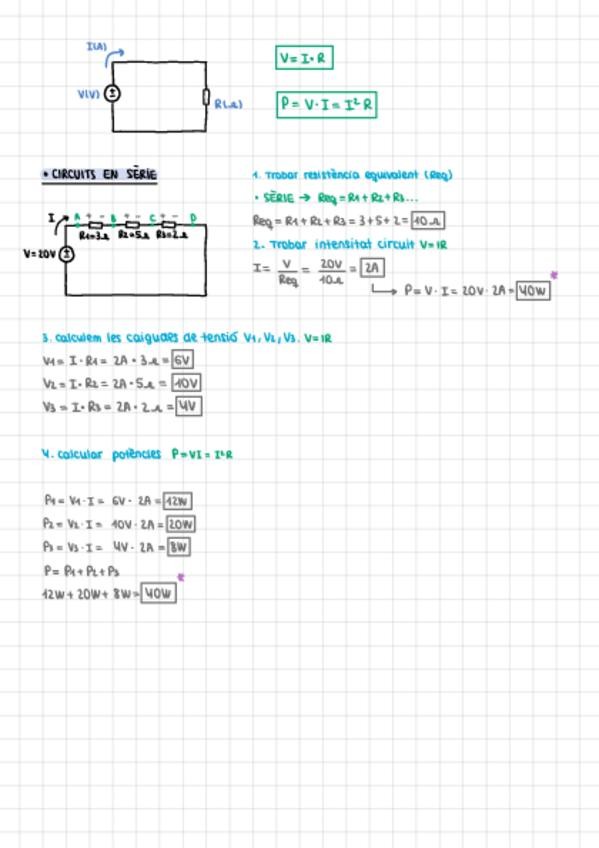 I(A)
V= I·R
V(V)
R(Ω)
P= V·I= I²R
• CIRCUITS EN SÈRIE
1. Trobar resistència equivalent (Req)
• SÈRIE → Req = R1+R2+R3...
I A + - B + - C + - D
R1=3Ω R2=5Ω R3=2Ω
Req = R1+R2+R3 = 3+5+2= 10Ω
2. Trobar intensitat circuit V=IR
V=20V
I= V/Req = 20V/10Ω = 2A
P= V·I= 20V·2A= 40W *
3. calculem les caigudes de tensió V1, V2, V3. V=IR
V1= I·R1= 2A·3Ω= 6V
V2= I·R2= 2A·5Ω= 10V
V3= I·R3= 2A·2Ω= 4V
4. calcular potències P=VI= I²R
P1= V1·I= 6V·2A= 12W
P2= V2·I= 10V·2A= 20W
P3= V3·I= 4V·2A= 8W
P= P1+P2+P3
12W+20W+8W= 40W *